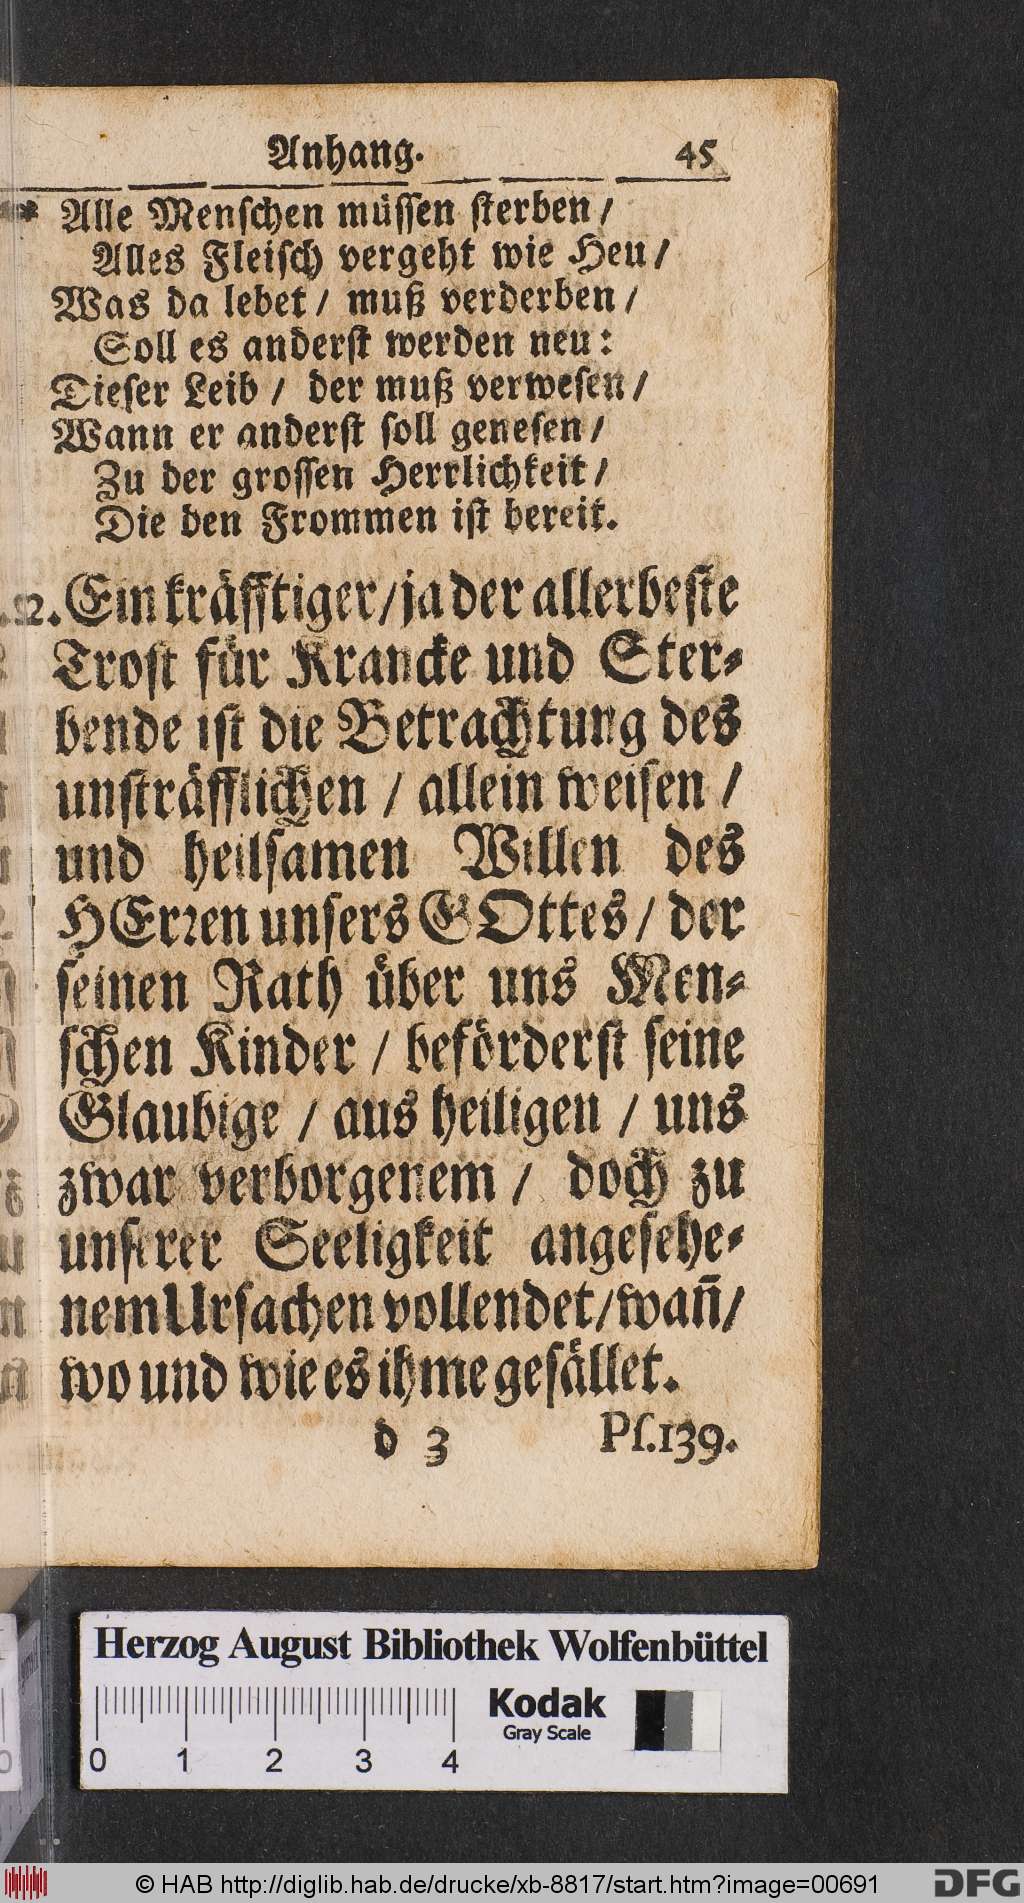 Anhang. 45
* Alle Menschen müssen sterben /
Alles Fleisch vergeht wie Heu /
Was da lebet / muß verderben /
Soll es anderst werden neu:
Dieser Leib / der muß verwesen /
Wann er anderst soll genesen /
Zu der grossen Herrlichkeit /
Die den Frommen ist bereit.
2. Ein kräfftiger / ja der allerbeste
Trost für Krancke und Ster-
bende ist die Betrachtung des
unsträfflichen / allein weisen /
und heilsamen Willen des
HErren unsers GOttes / der
seinen Rath über uns Men-
schen Kinder / beförderst seine
Glaubige / aus heiligen / uns
zwar verborgenem / doch zu
unserer Seeligkeit angesehe-
nem Ursachen vollendet / wañ /
wo und wie es ihme gefället.
d 3 Ps. 139.
Herzog August Bibliothek Wolfenbüttel
Kodak
Gray Scale
0 1 2 3 4
© HAB http://diglib.hab.de/drucke/xb-8817/start.htm?image=00691
DFG